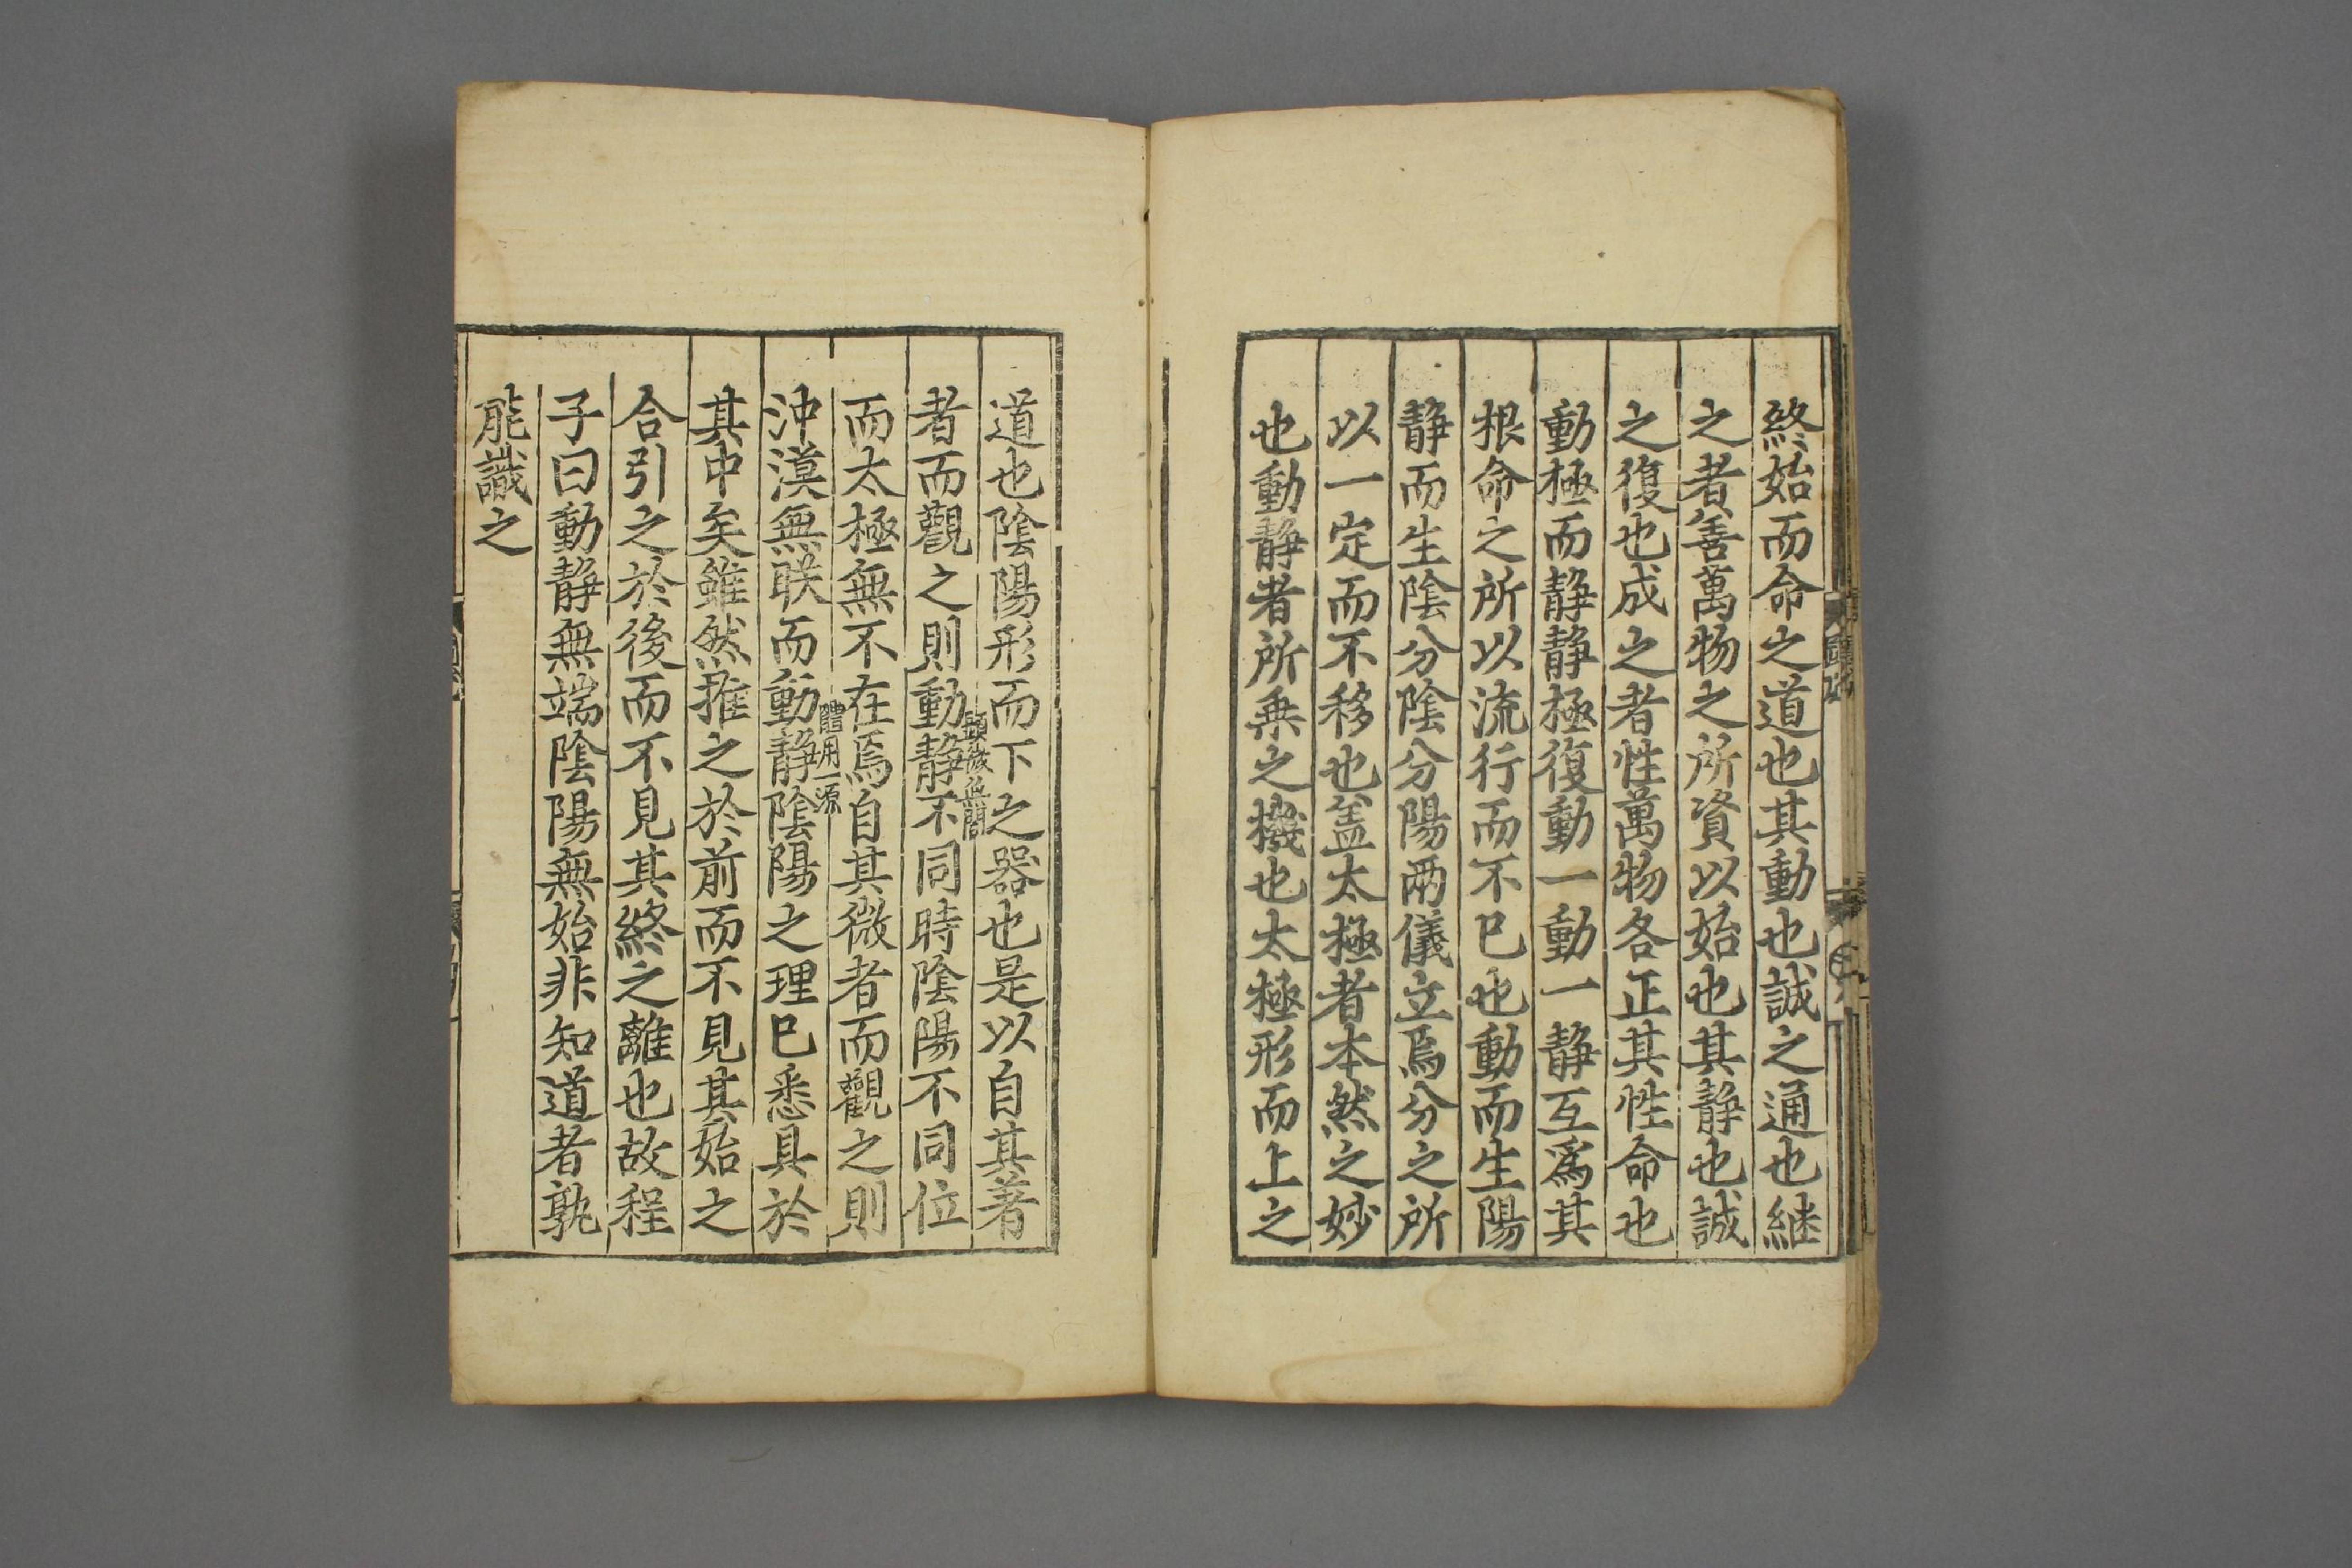 終始而命之道也其動也誠之通也継
之者善萬物之所資以始也其静也誠
之復也成之者性萬物各正其性命也
動極而静静極復動一動一静互爲其
根命之所以流行而不已也動而生陽
静而生陰分陰分陽兩儀立焉分之所
以一定而不移也盖太極者本然之妙
也動静者所乗之機也太極形而上之
道也陰陽形而下之器也是以自其著
顯微無間
者而觀之則動静不同時陰陽不同位
而太極無不在焉自其微者而觀之則
體用一源
沖漠無朕而動静陰陽之理已悉具於
其中矣雖然推之於前而不見其始之
合引之於後而不見其終之離也故程
子曰動静無端陰陽無始非知道者孰
能識之